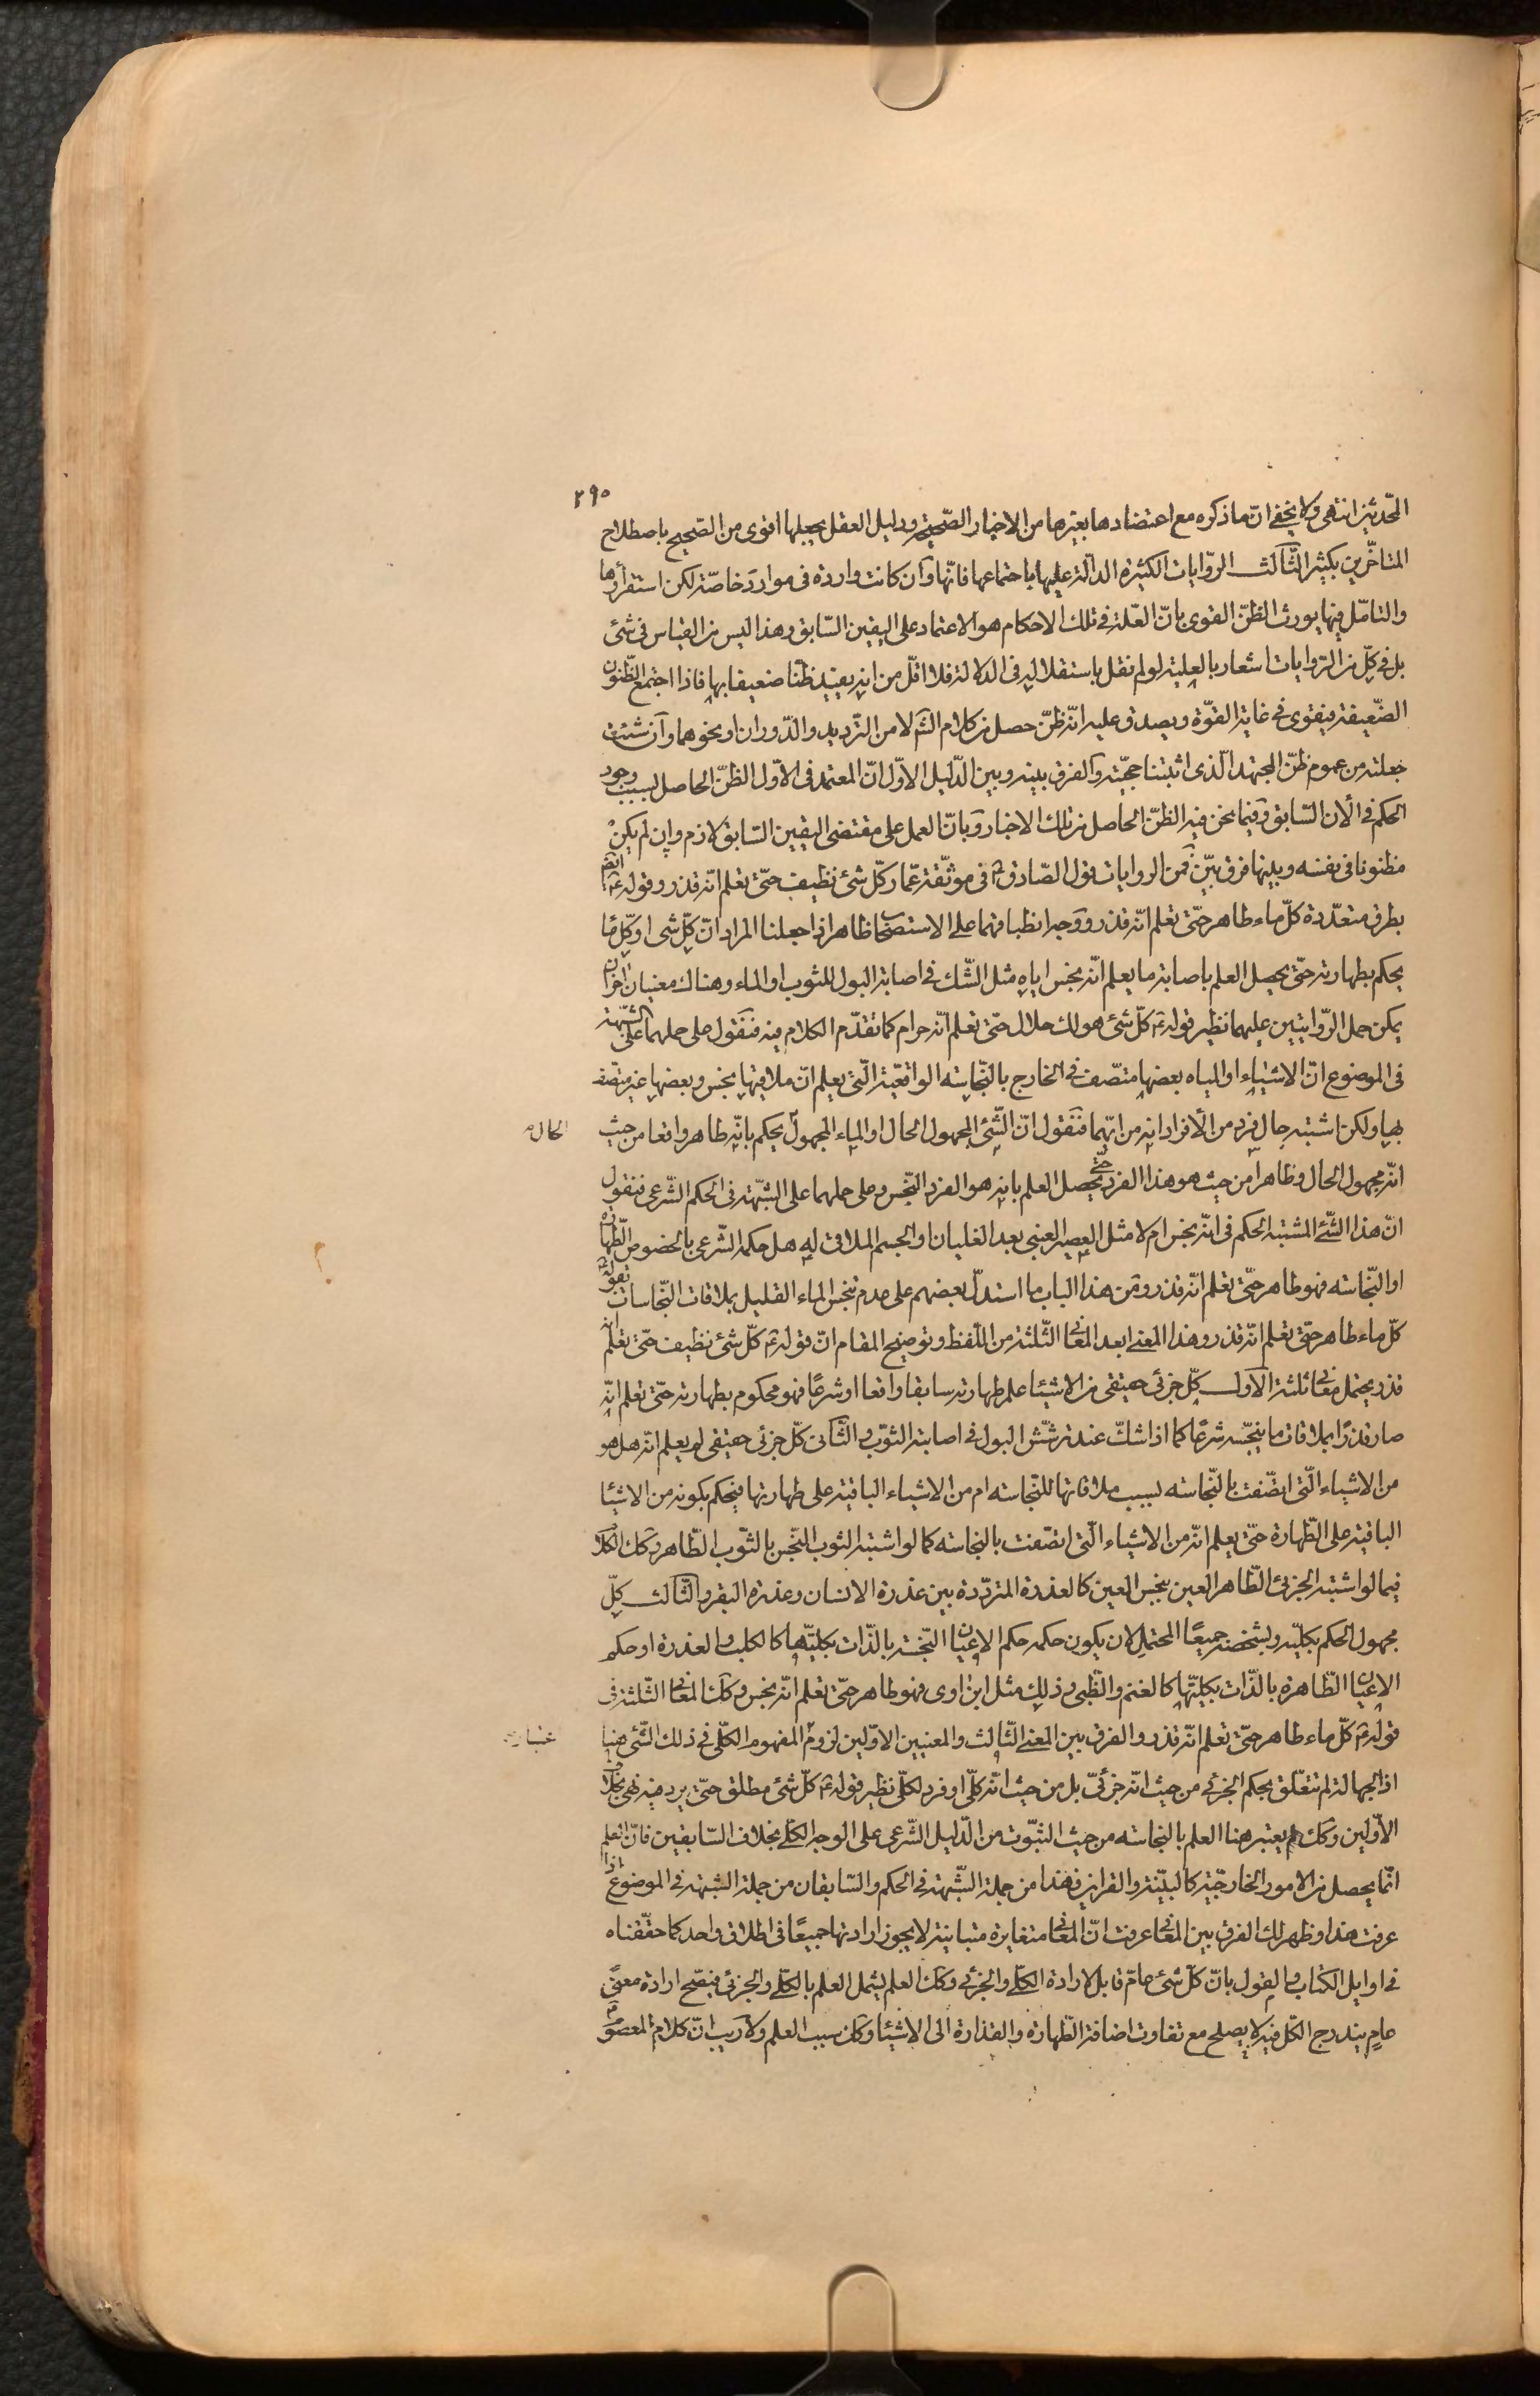 ٢٩٥
المحدثين انتهى ولا يخفى انّ ما ذكره مع اعتضادها بغيرها من الاخبار الصّحيحة ودليل العقل يجعلها اقوى من الصّحيح باصطلاح
المتاخّرين بكثير الثّالث الرّوايات الكثيرة الدالّة عليها باجتماعها فانّها وان كانت واردة فى موارد خاصّة لكن استقراؤها
والتامّل فيها يورث الظنّ القوى بانّ العلّة فى تلك الاحكام هو الاعتماد على اليقين السّابق وهذا ليس من القياس فى شئ
بل فى كلّ من الرّوايات اشعار بالعلية لو لم نقل باستقلاله فى الدلالة فلا اقلّ من انه يفيد ظنّا ضعيفا بها فاذا اجتمع الظّنون
الضّعيفة فيتقوى فى غاية القوّة ويصدق عليه انّه ظنّ حصل من كلام الشّ لا من التّرديد والدّوران او نحوهما وان شئت
جعلته من عموم ظنّ المجتهد الّذى اثبتنا حجيّته والفرق بينه وبين الدّليل الاوّل انّ المعتمد فى الاوّل الظنّ الحاصل بسبب وجود
الحكم فى الآن السّابق وفيما نحن فيه الظنّ الحاصل من تلك الاخبار وبانّ العمل على مقتضى اليقين السّابق لازم وان لم يكن
مظنونا فى نفسه وبينها فرق بيّن فمن الروايات قول الصّادق ع فى موثّقة عمّار كلّ شئ نظيف حتّى تعلم انّه قذر وقوله ع ايضا
بطرق متعدّدة كلّ ماء طاهر حتّى تعلم انّه قذر ووجه انطباقهما على الاستصحاب ظاهر اذا جعلنا المراد انّ كلّ شئ او كلّ ماء
يحكم بطهارته حتّى يحصل العلم باصابة ما يعلم انّه نجس اياه مثل الشّك فى اصابة البول للثوب او الماء وهناك معنيان اخران
يمكن حمل الرّوايتين عليهما نظير قوله ع كلّ شئ هو لك حلال حتّى تعلم انّه حرام كما تقدّم الكلام فيه فنقول على حملهما على الشّبهة
فى الموضوع انّ الاشياء او المياه بعضها متّصف فى الخارج بالنّجاسة الواقعيّة الّتى يعلم انّ ملاقيها نجس وبعضها غير متّصف
بها ولكن اشتبه حال فرد من الأفراد انه من ايّهما فنقول انّ الشّئ المجهول الحال او الماء المجهول يحكم بانّه طاهر واقعا من حيث
الحال
انّه مجهول الحال وظاهرا من حيث هو هذا الفرد حتّى يحصل العلم بانه هو الفرد النّجس وعلى حملهما على الشّبهة فى الحكم الشّرعى فنقول
انّ هذا الشّئ المشتبه الحكم فى انّه نجس ام لا مثل العصير العنبى بعد الغليان والجسم الملاقى له هل حكمه الشّرعى بالخصوص الطّهارة
او النّجاسه فهو طاهر حتّى تعلم انّه قذر ومن هذا الباب ما استدلّ بعضهم على عدم تنجس الماء القليل بملاقات النّجاسات بقوله ع
كلّ ماء طاهر حتّى تعلم انّه قذر وهذا المعنى ابعد المعانى الثّلثة من اللّفظ وتوضيح المقام انّ قوله ع كلّ شئ نظيف حتّى تعلم انه
قذر يحتمل معانى ثلثة الاول كلّ جزئى حقيقى من الاشياء علم طهارته سابقا واقعا او شرعًا فهو محكوم بطهارته حتّى تعلم انّه
صار قذرًا بملاقات ما ينجّسه شرعًا كما اذا شكّ عند ترشّش البول فى اصابته الثوب والثّانى كلّ جزئى حقيقى لم يعلم انّه هل هو
من الاشياء الّتى اتّصفت بالنّجاسه بسبب ملاقاتها للنّجاسه ام من الاشياء الباقية على طهارتها فيحكم بكونه من الاشياء
الباقية على الطّهارة حتّى يعلم انّه من الاشياء الّتى اتّصفت بالنجاسه كما لو اشتبه الثوب النّجس بالثّوب الطّاهر وكك الكلام
فيما لو اشتبه الجزئى الطّاهر العين بنجس العين كالعذرة المتردّدة بين عذرة الانسان وعذرة البقر والثّالث كلّ
مجهول الحكم بكليّه وبشخصه جميعًا المحتمل لان يكون حكمه حكم الاعيان النّجسة بالذّات بكليّتها كالكلب والعذرة او حكم
الاعيان الطّاهرة بالذّات بكليّتها كالغنم والظّبى وذلك مثل ابن اوى فهو طاهر حتّى تعلم انّه نجس وكك المعانى الثّلثة فى
قوله ع كلّ ماء طاهر حتّى تعلم انّه قذر والفرق بين المعنى الثّالث والمعنيين الاوّلين لزوم المفهوم الكلّى فى ذلك الشّئ هنا
اذ الجهالة لم تتعلّق بحكم الجزئى من حيث انّه جزئىّ بل من حيث انّه كلّى او فرد لكلّى نظير قوله ع كلّ شئ مطلق حتّى يرد فيه نهى بخلاف
الأوّلين وكك يعتبر هنا العلم بالنجاسه من حيث الثّبوت من الدّليل الشّرعى على الوجه الكلّى بخلاف السّابقين فانّ العلم
انّما يحصل من الامور الخارجيّة كالبيّنة والقراين فهذا من جملة الشّبهة فى الحكم والسّابقان من جملة الشبهة فى الموضوع اذا
عرفت هذا وظهر لك الفرق بين المعانى عرفت انّ المعانى متغايرة متباينة لا يجوز ارادتها جميعًا فى اطلاق واحد كما حقّقناه
فى اوايل الكتاب والقول بانّ كلّ شئ عامّ قابل لارادة الكلّى والجزئى وكك العلم يشمل العلم بالكلّى والجزئى فيصّح ارادة معنىً
عامٍ يندرج الكلّ فيه لا يصلح مع تفاوت اضافة الطّهارة والقذارة الى الاشياء وكك سبب العلم ولا ريب انّ كلام المعصوم